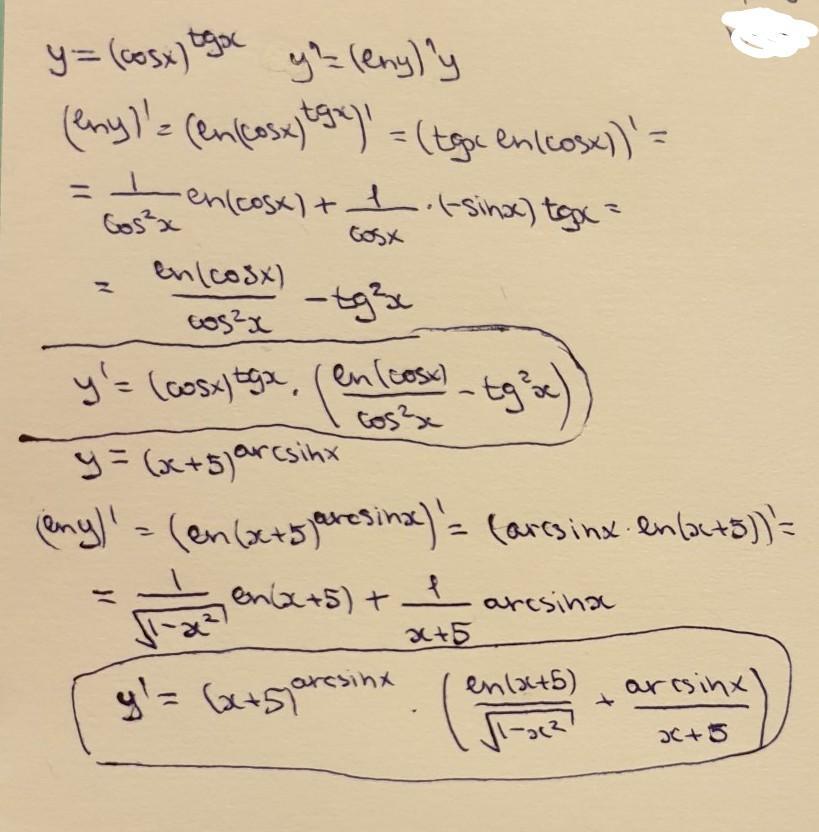 y = (cosx)^tgx   y' = (lny)'y
(lny)' = (ln(cosx)^tgx)' = (tgx ln(cosx))' =
= 1/cos²x ln(cosx) + 1/cosx · (-sinx) tgx =
= ln(cosx)/cos²x - tg²x
y' = (cosx)^tgx · (ln(cosx)/cos²x - tg²x)
y = (x+5)^arcsinx
(lny)' = (ln(x+5)^arcsinx)' = (arcsinx · ln(x+5))' =
= 1/√(1-x²) ln(x+5) + 1/(x+5) arcsinx
y' = (x+5)^arcsinx · (ln(x+5)/√(1-x²) + arcsinx/(x+5))